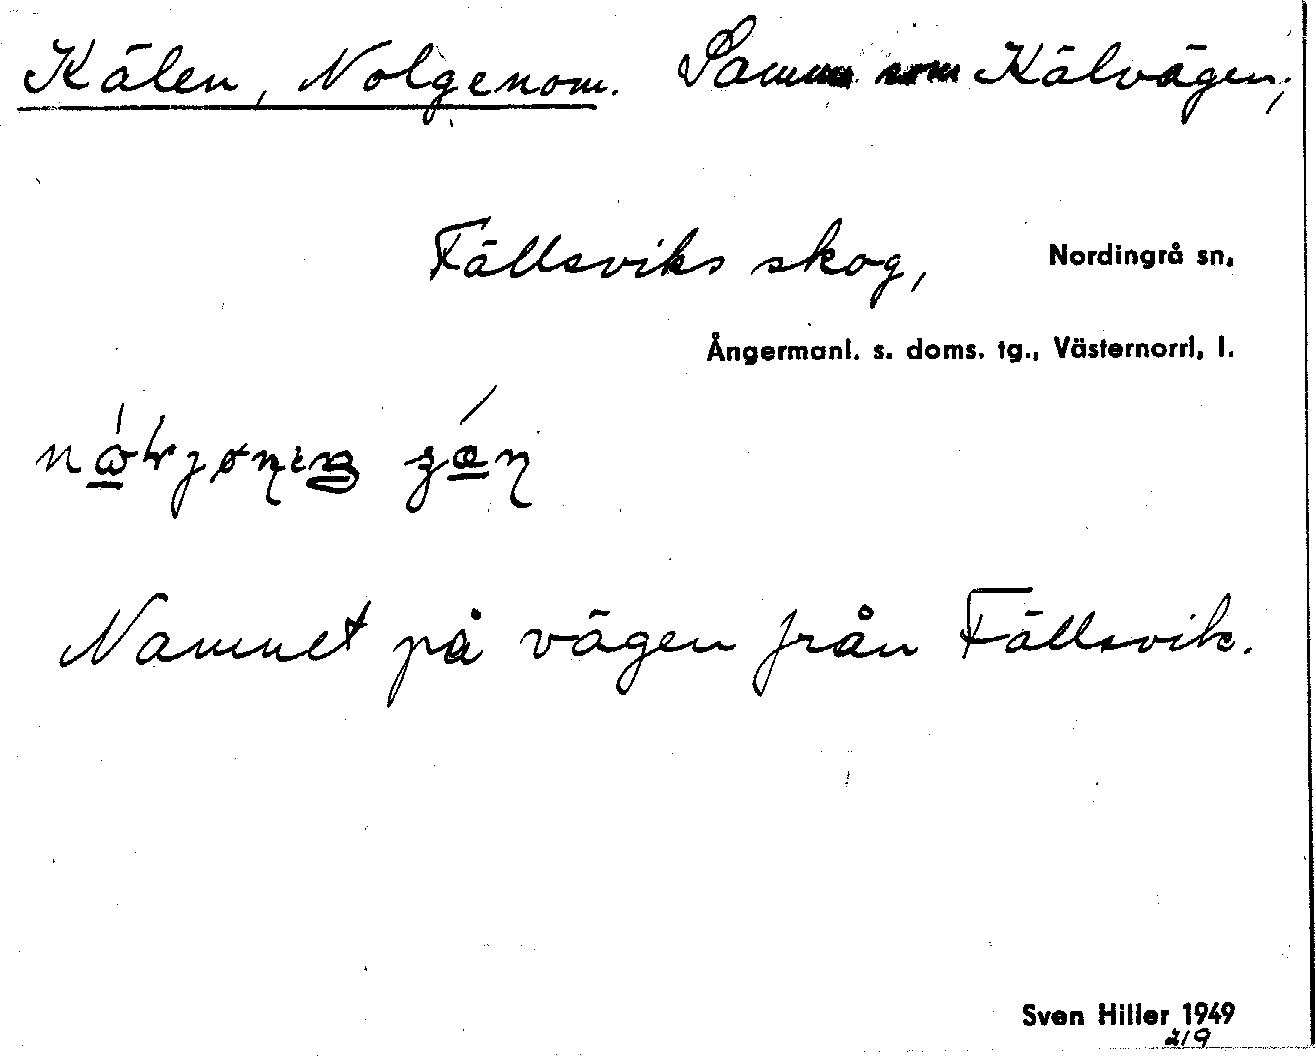 Kälen, Nolgenom. Samma som Kälvägen;
Fällsviks skog, Nordingrå sn,
Ångermanl. s. doms. tg., Västernorrl, l.
Namnet på vägen från Fällsvik.
Sven Hiller 1949
2/9